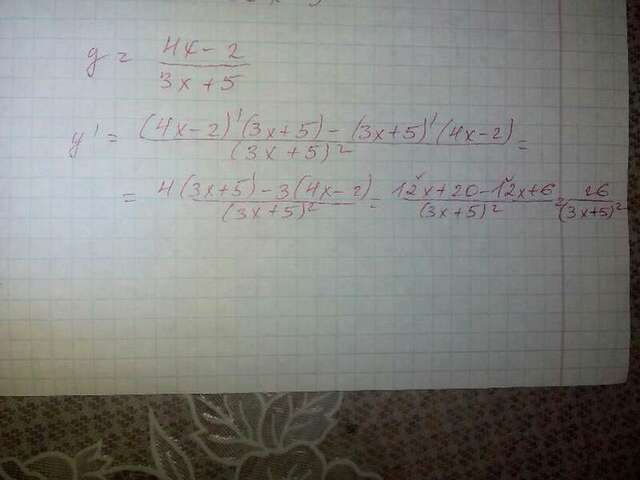 y = (4x - 2) / (3x + 5)
y' = ((4x-2)'(3x+5) - (3x+5)'(4x-2)) / (3x+5)² =
= (4(3x+5) - 3(4x-2)) / (3x+5)² = (12x+20-12x+6) / (3x+5)² = 26 / (3x+5)²